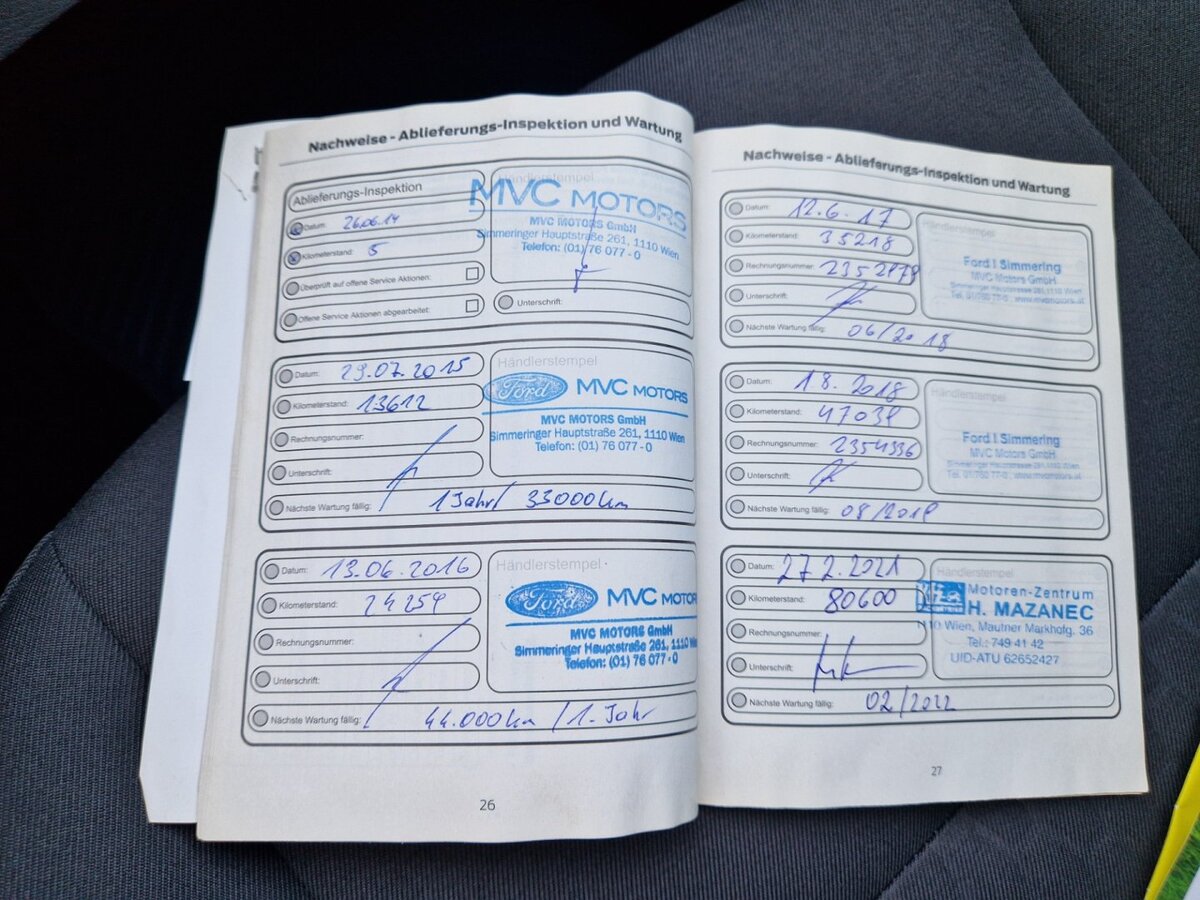 Nachweise - Ablieferungs-Inspektion und Wartung
Ablieferungs-Inspektion
Datum: 26.06.14
Kilometerstand: 5
Überprüft auf offene Service Aktionen:
Offene Service Aktionen abgearbeitet:
Händlerstempel
MVC MOTORS
MVC MOTORS GmbH
Simmeringer Hauptstraße 261, 1110 Wien
Telefon: (01) 76 077 - 0
Unterschrift:
Datum: 29.07.2015
Kilometerstand: 13612
Rechnungsnummer:
Unterschrift:
Nächste Wartung fällig: 1 Jahr / 33000 km
Händlerstempel
Ford MVC MOTORS
MVC MOTORS GmbH
Simmeringer Hauptstraße 261, 1110 Wien
Telefon: (01) 76 077 - 0
Datum: 13.06.2016
Kilometerstand: 24254
Rechnungsnummer:
Unterschrift:
Nächste Wartung fällig: 44.000km / 1. Jahr
Händlerstempel
Ford MVC MOTOR
MVC MOTORS GmbH
Simmeringer Hauptstraße 261, 1110
Telefon: (01) 76 077 - 0
26
Nachweise - Ablieferungs-Inspektion und Wartung
Datum: 12.6.17
Kilometerstand: 35218
Rechnungsnummer:
Unterschrift:
Nächste Wartung fällig: 06/2018
Händlerstempel
Ford I Simmering
MVC Motors GmbH
Datum: 1 8. 2018
Kilometerstand: 47039
Rechnungsnummer: 2354936
Unterschrift:
Nächste Wartung fällig: 08/2019
Händlerstempel
Ford I Simmering
MVC Motors GmbH
Datum: 27 2. 2021
Kilometerstand: 80600
Rechnungsnummer:
Unterschrift:
Nächste Wartung fällig: 02/2022
Händlerstempel
Motoren-Zentrum
H. MAZANEC
Wien, Mautner Markhofg. 36
Tel.: 749 41 42
UID-ATU 62652427
27